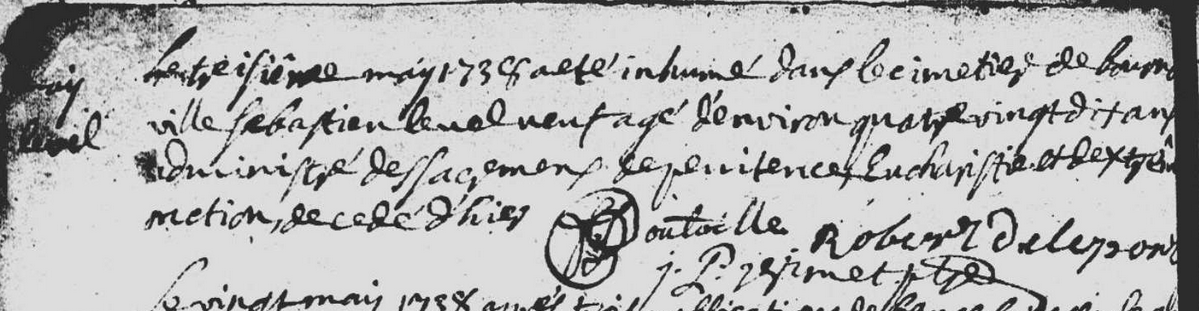 Le treisiême may 1738 a eté inhumé dans le cimetiere de bourn
may
ville sebastien level veuf agé d'environ quatre vingt dix ans
level
administré des sacremens de penitence Eucharistie et d'extrêm
onction, decedé d'hier
Robert Delepon
j. P.
le vingt may 1738 aprés